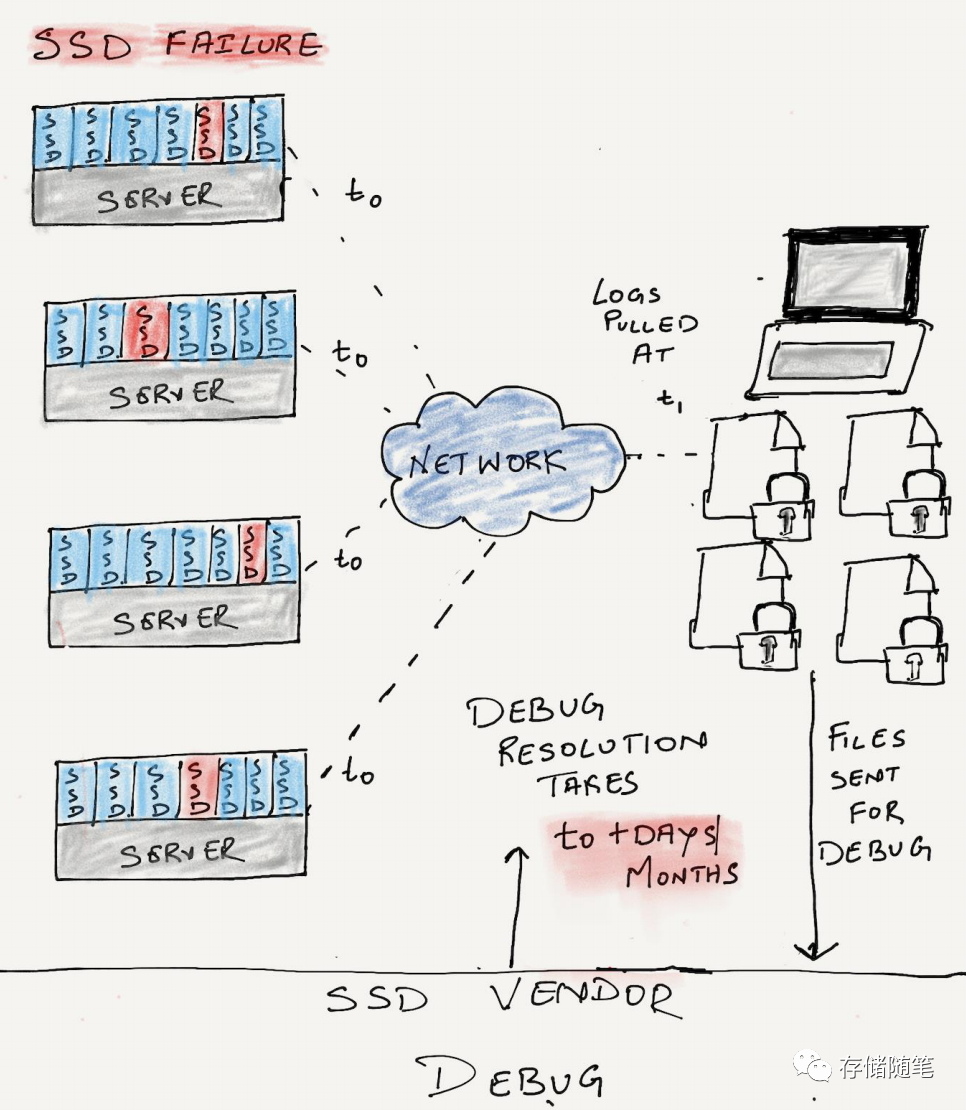 SSD FAILURE
SSD SSD SSD SSD SSD SSD SSD
SERVER
t0
SSD SSD SSD SSD SSD SSD SSD
SERVER
t0
LOGS
PULLED
AT
t1
NETWORK
SSD SSD SSD SSD SSD SSD SSD
SERVER
t0
SSD SSD SSD SSD SSD SSD SSD
SERVER
t0
DEBUG
RESOLUTION
TAKES
to + DAYS/
MONTHS
FILES
SENT
FOR
DEBUG
SSD VENDOR
DEBUG
存储随笔